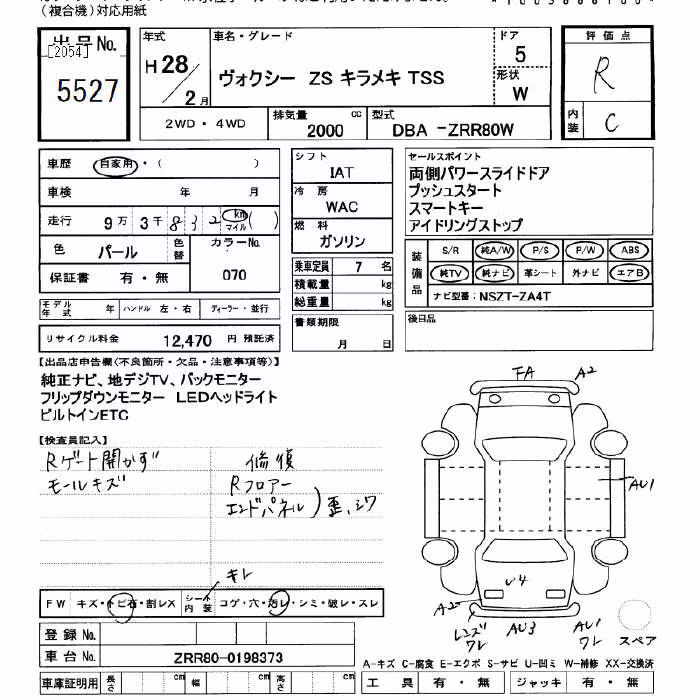 （複合機）対応用紙
出品No.
[2054]
5527
年式
H 28 / 2 月
車名・グレード
ヴォクシー ZS キラメキ TSS
ドア
5
形状
W
評価点
R
内装
C
2WD ・ 4WD
排気量 cc
2000
型式
DBA -ZRR80W
車歴 自家用 ・（ ）
車検 年 月
走行 9 万 3 千 8 3 2 km マイル ( )
色 パール 色替 カラーNo.
保証書 有 ・ 無 070
モデル年式 年 ハンドル 左・右 ディーラー・並行
リサイクル料金 12,470 円 預託済
シフト
IAT
冷房
WAC
燃料
ガソリン
乗車定員 7 名
積載量 kg
総重量 kg
書類期限
月 日
セールスポイント
両側パワースライドドア
プッシュスタート
スマートキー
アイドリングストップ
装備品
S/R 純A/W P/S P/W ABS
純TV 純ナビ 革シート 外ナビ エアB
ナビ型番: NSZT-ZA4T
後日品
【出品店申告欄(不良箇所・欠品・注意事項等)】
純正ナビ、地デジTV、バックモニター
フリップダウンモニター LEDヘッドライト
ビルトインETC
【検査員記入】
Rゲート開かず
モールキズ
修復
Rフロアー
エンドパネル ) 歪、シワ
キレ
FW キズ・トビ石・割レX シート内装 コゲ・穴・汚レ・シミ・破レ・スレ
登録No.
車台No. ZRR80-0198373
車庫証明用 長さ cm 幅 cm 高さ cm
FA
A2
AU1
U4
A2
レンズワレ
AU3
AU1
ワレ
スペア
A-キズ C-腐食 E-エクボ S-サビ U-凹ミ W-補修 XX-交換済
工具 有 ・ 無 ジャッキ 有 ・ 無